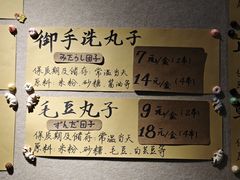 御手洗丸子
みたらし団子
7元/盒(2串)
14元/盒(4串)
保质期及储存:常温当天
原料:米粉、砂糖、酱油等
毛豆丸子
ずんだ団子
9元/盒(2串)
18元/盒(4串)
保质期及储存:常温当天
原料:米粉、砂糖、毛豆、白芸豆等